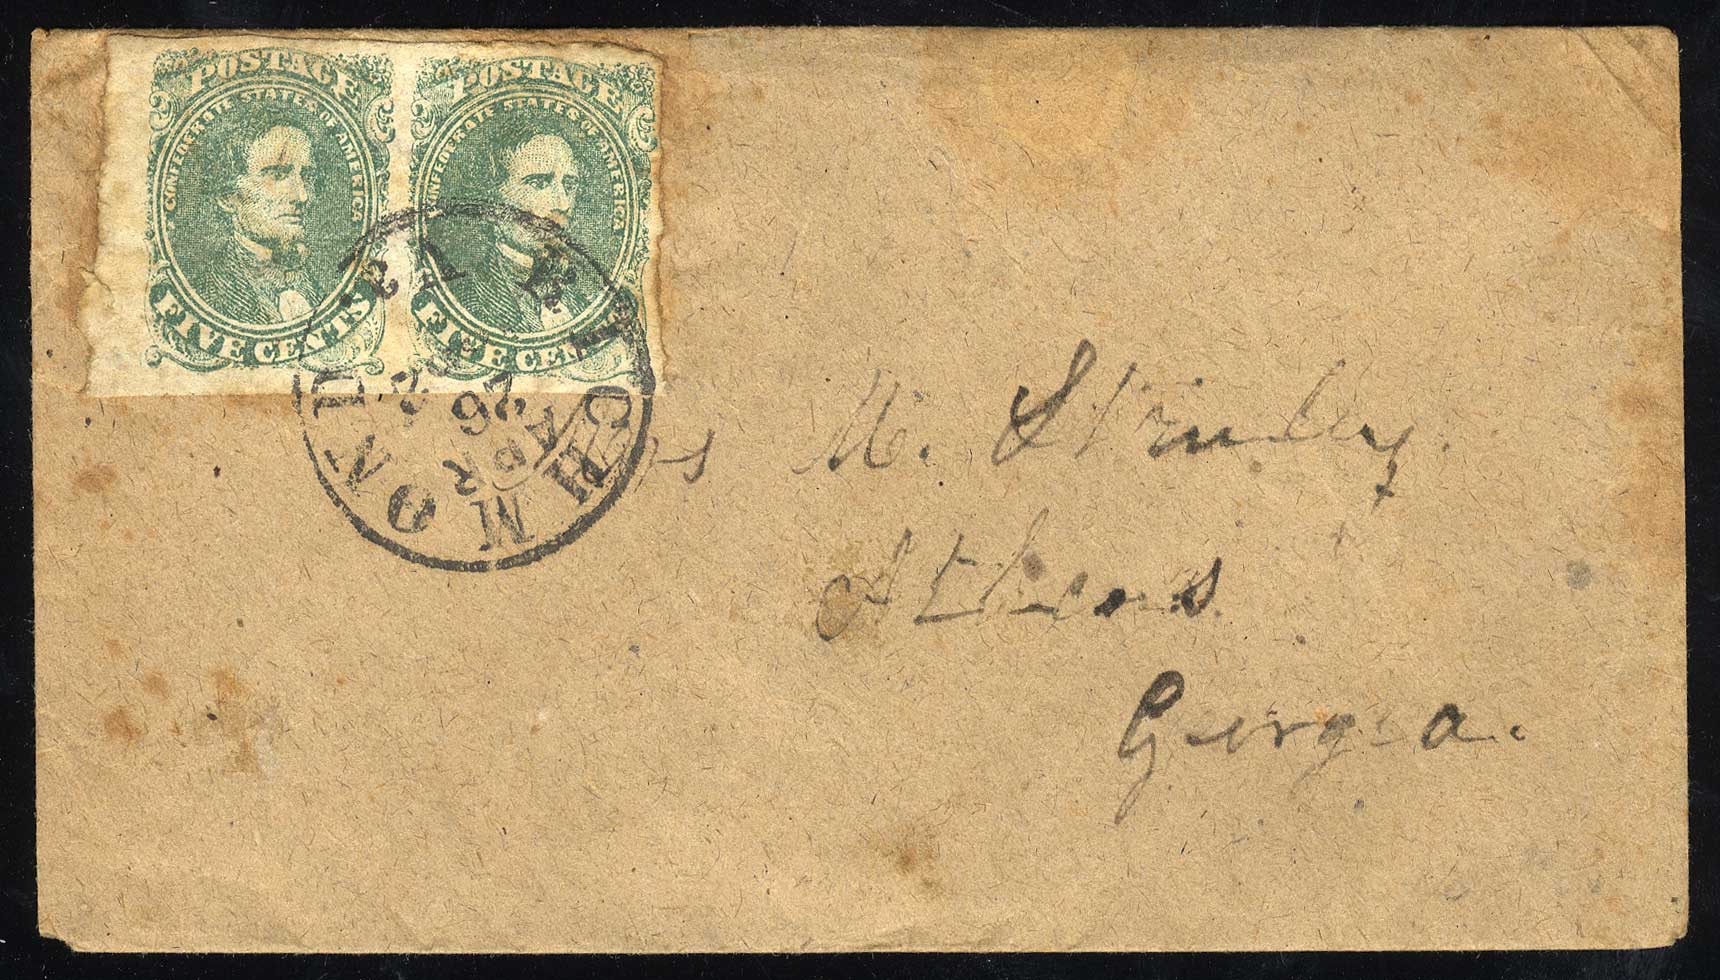 POSTAGE
CONFEDERATE STATES OF AMERICA
FIVE CENTS
POSTAGE
CONFEDERATE STATES OF AMERICA
FIVE CENTS
RICHMOND VA
APR
26
M.
Athens
Georgia.